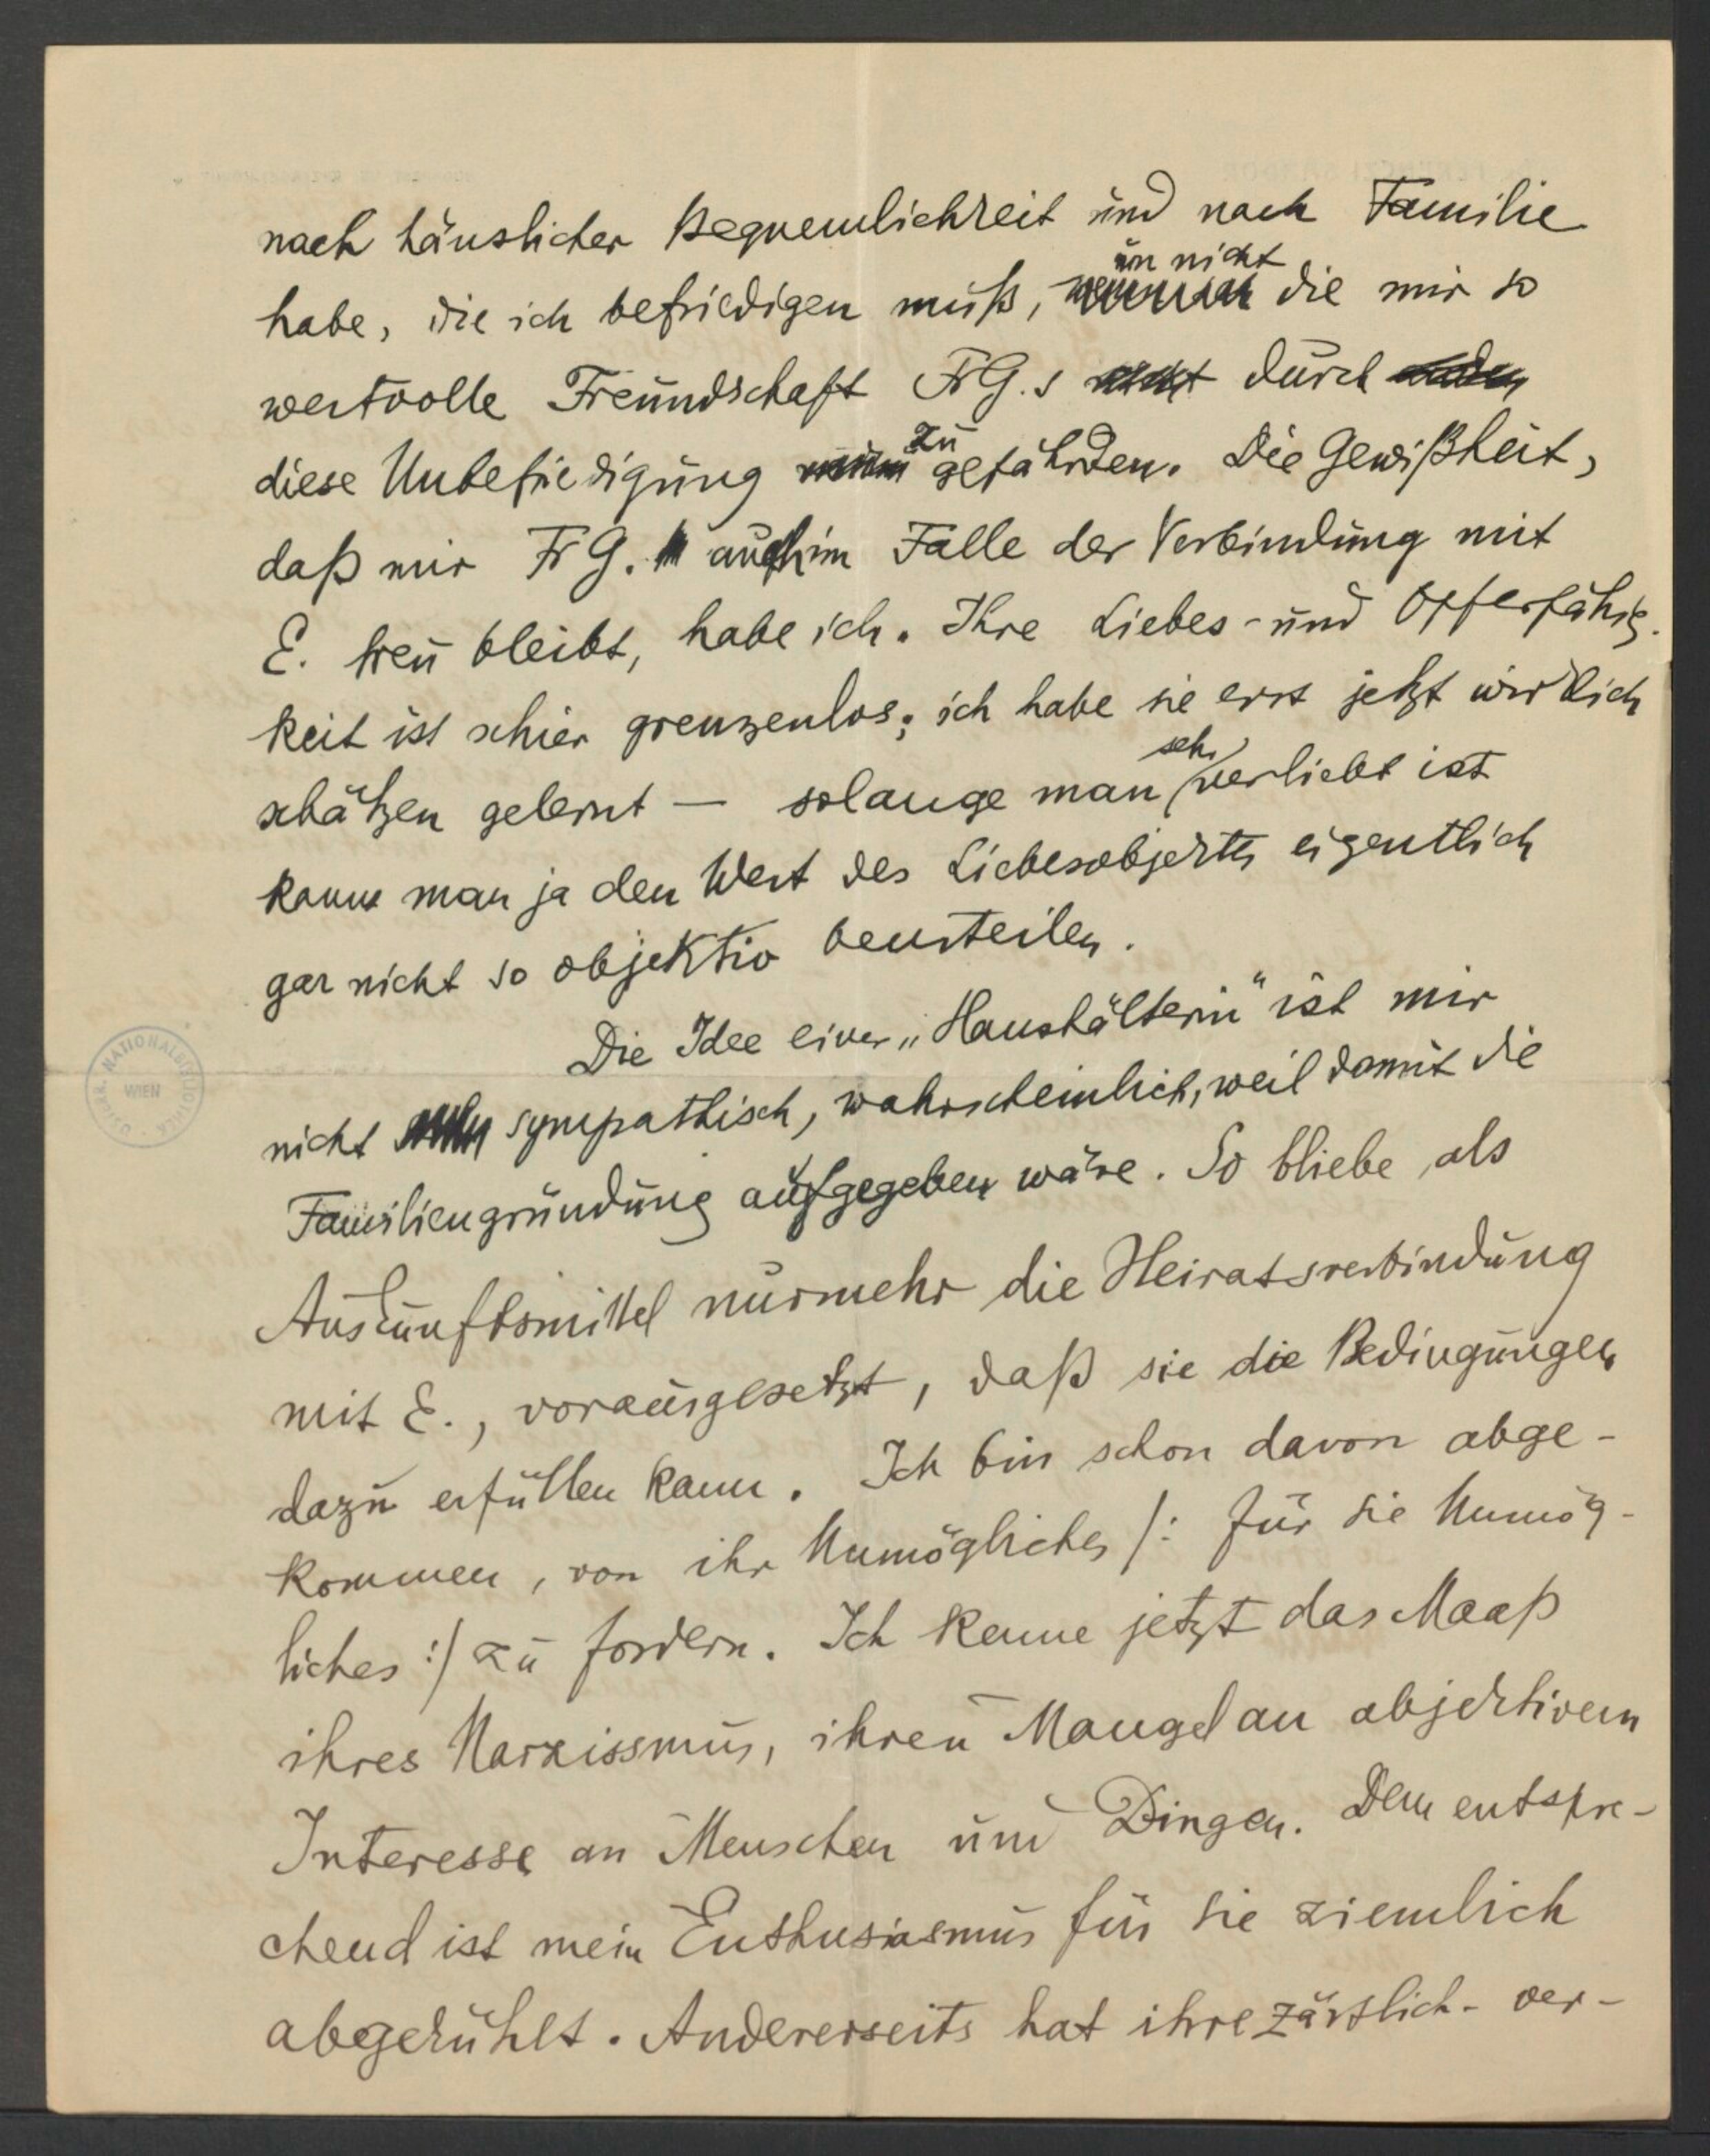 nach häuslicher Bequemlichkeit und nach Familie
habe, die ich befriedigen muß, um nicht die mir so
wertvolle Freundschaft Fr G.s durch
diese Unbefriedigung zu gefährden. Die Gewißheit,
daß mir Fr G. auch im Falle der Verbindung mit
E. treu bleibt, habe ich. Ihre Liebes- und Opferfähig-
keit ist schier grenzenlos; ich habe sie erst jetzt wirklich
schätzen gelernt — solange man sehr verliebt ist
kann man ja den Wert des Liebesobjektes eigentlich
gar nicht so objektiv beurteilen.
Die Idee einer „Haushälterin" ist mir
nicht sympathisch, wahrscheinlich, weil damit die
Familiengründung aufgegeben wäre. So bliebe als
Auskunftsmittel nurmehr die Heiratsverbindung
mit E., vorausgesetzt, daß sie die Bedingungen
dazu erfüllen kann. Ich bin schon davon abge-
kommen, von ihr Unmögliches /: für sie Unmög-
liches :/ zu fordern. Ich kenne jetzt das Maaß
ihres Narzissmus, ihren Mangel an objektivem
Interesse an Menschen und Dingen. Dem entspre-
chend ist mein Enthusiasmus für sie ziemlich
abgekühlt. Andererseits hat ihre zärtlich- ver-
ÖSTERR. NATIONALBIBLIOTHEK
WIEN